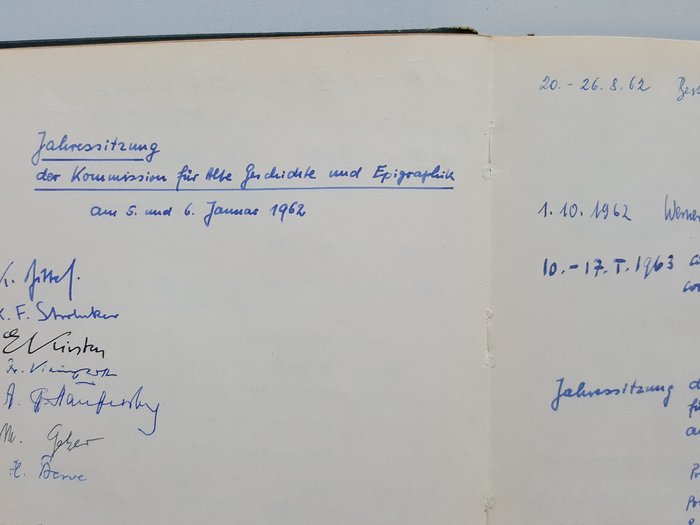 Jahressitzung
der Kommission für Alte Geschichte und Epigraphik
am 5. und 6. Januar 1962
K. Bittel.
K. F. Stroheker
E Kirsten
A. G. Stauffenberg
M. Gelzer
H. Berve
20.-26.8.62
1.10.1962 Werner
10.-17.I.1963
Jahressitzung d
fü